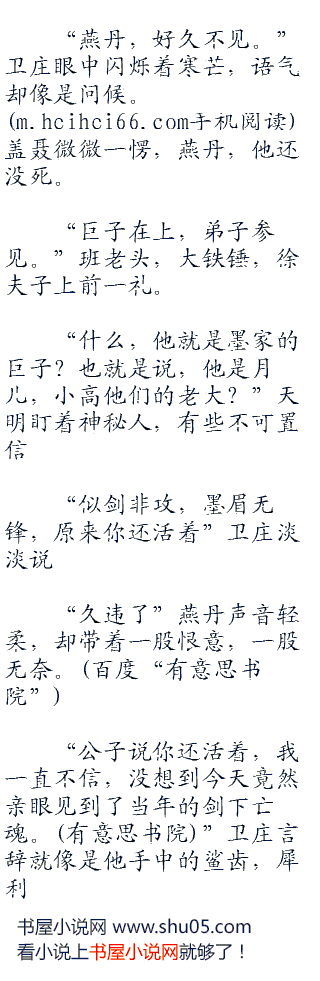 “燕丹，好久不见。”
卫庄眼中闪烁着寒芒，语气
却像是问候。
(m.hcihci66.com手机阅读)
盖聂微微一愣，燕丹，他还
没死。
“巨子在上，弟子参
见。”班老头，大铁锤，徐
夫子上前一礼。
“什么，他就是墨家的
巨子？也就是说，他是月
儿，小高他们的老大？”天
明盯着神秘人，有些不可置
信
“似剑非攻，墨眉无
锋，原来你还活着”卫庄淡
淡说
“久违了”燕丹声音轻
柔，却带着一股恨意，一股
无奈。(百度“有意思书
院”)
“公子说你还活着，我
一直不信，没想到今天竟然
亲眼见到了当年的剑下亡
魂。(有意思书院)”卫庄言
辞就像是他手中的鲨齿，犀
利
书屋小说网 www.shu05.com
看小说上书屋小说网就够了！